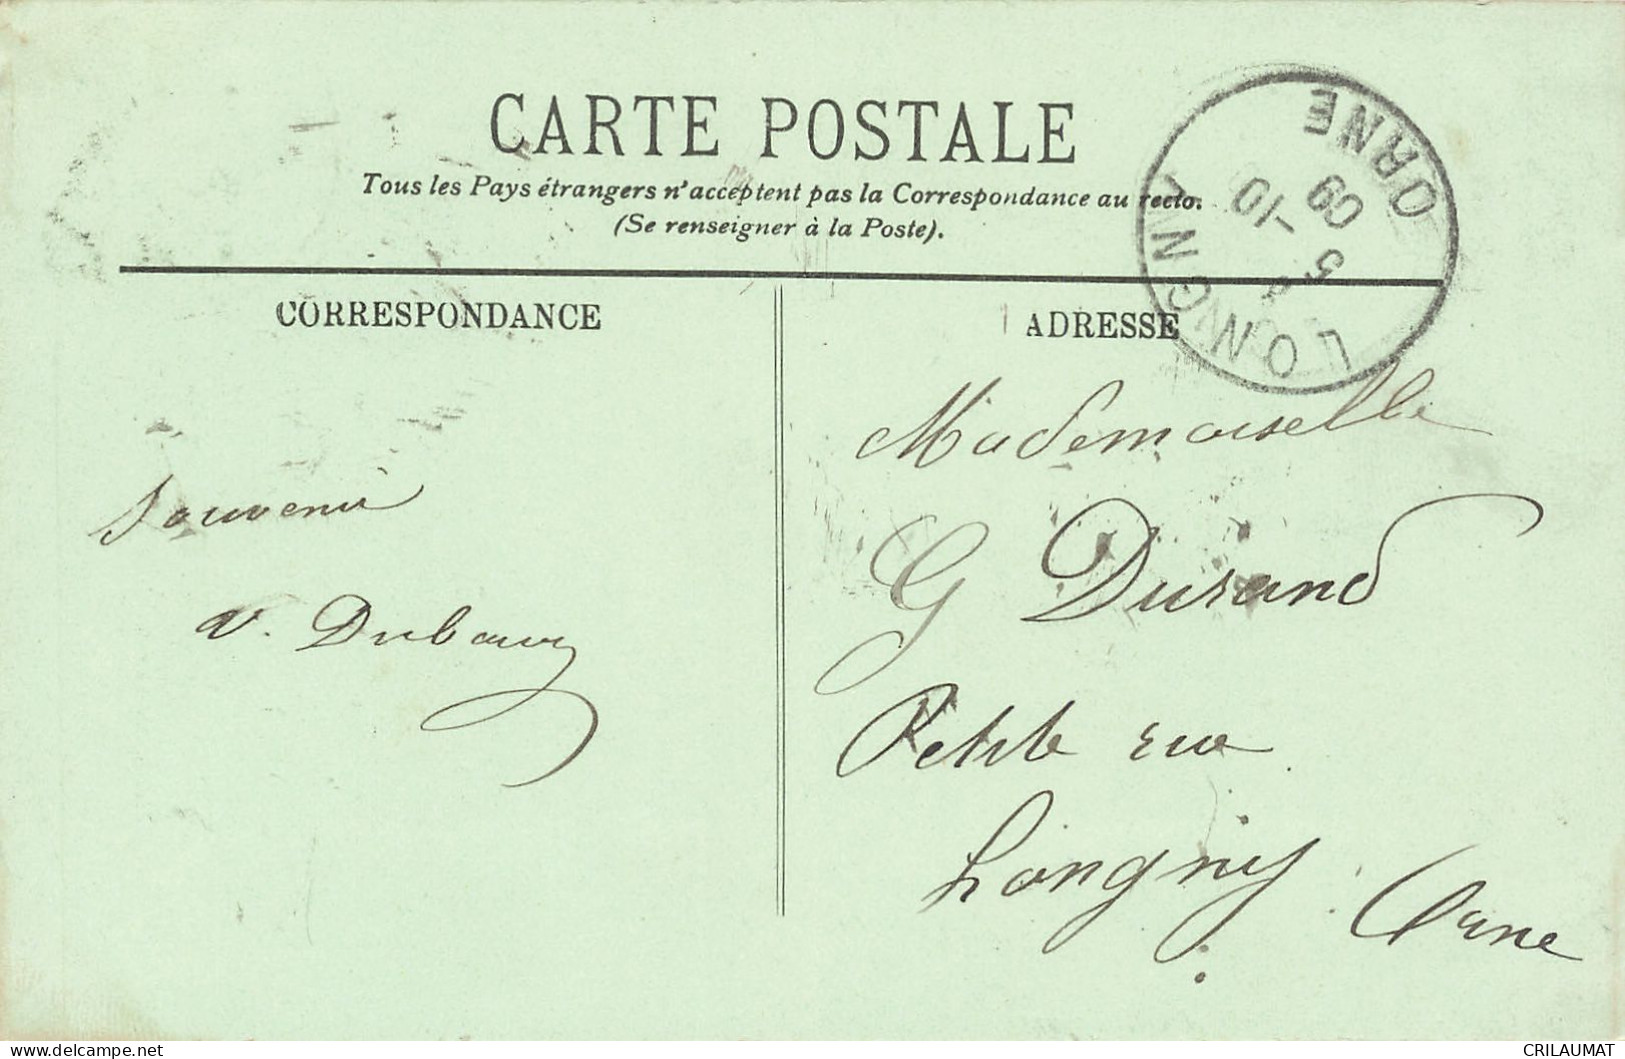 CARTE POSTALE
Tous les Pays étrangers n'acceptent pas la Correspondance au recto.
(Se renseigner à la Poste).
LONGNY
ORNE
5 -10
09
CORRESPONDANCE
Souvenir
V. Dubourg
ADRESSE
Mademoiselle
G Durand
Petite rue
Longny
Orne
delcampe.net
CRILAUMAT